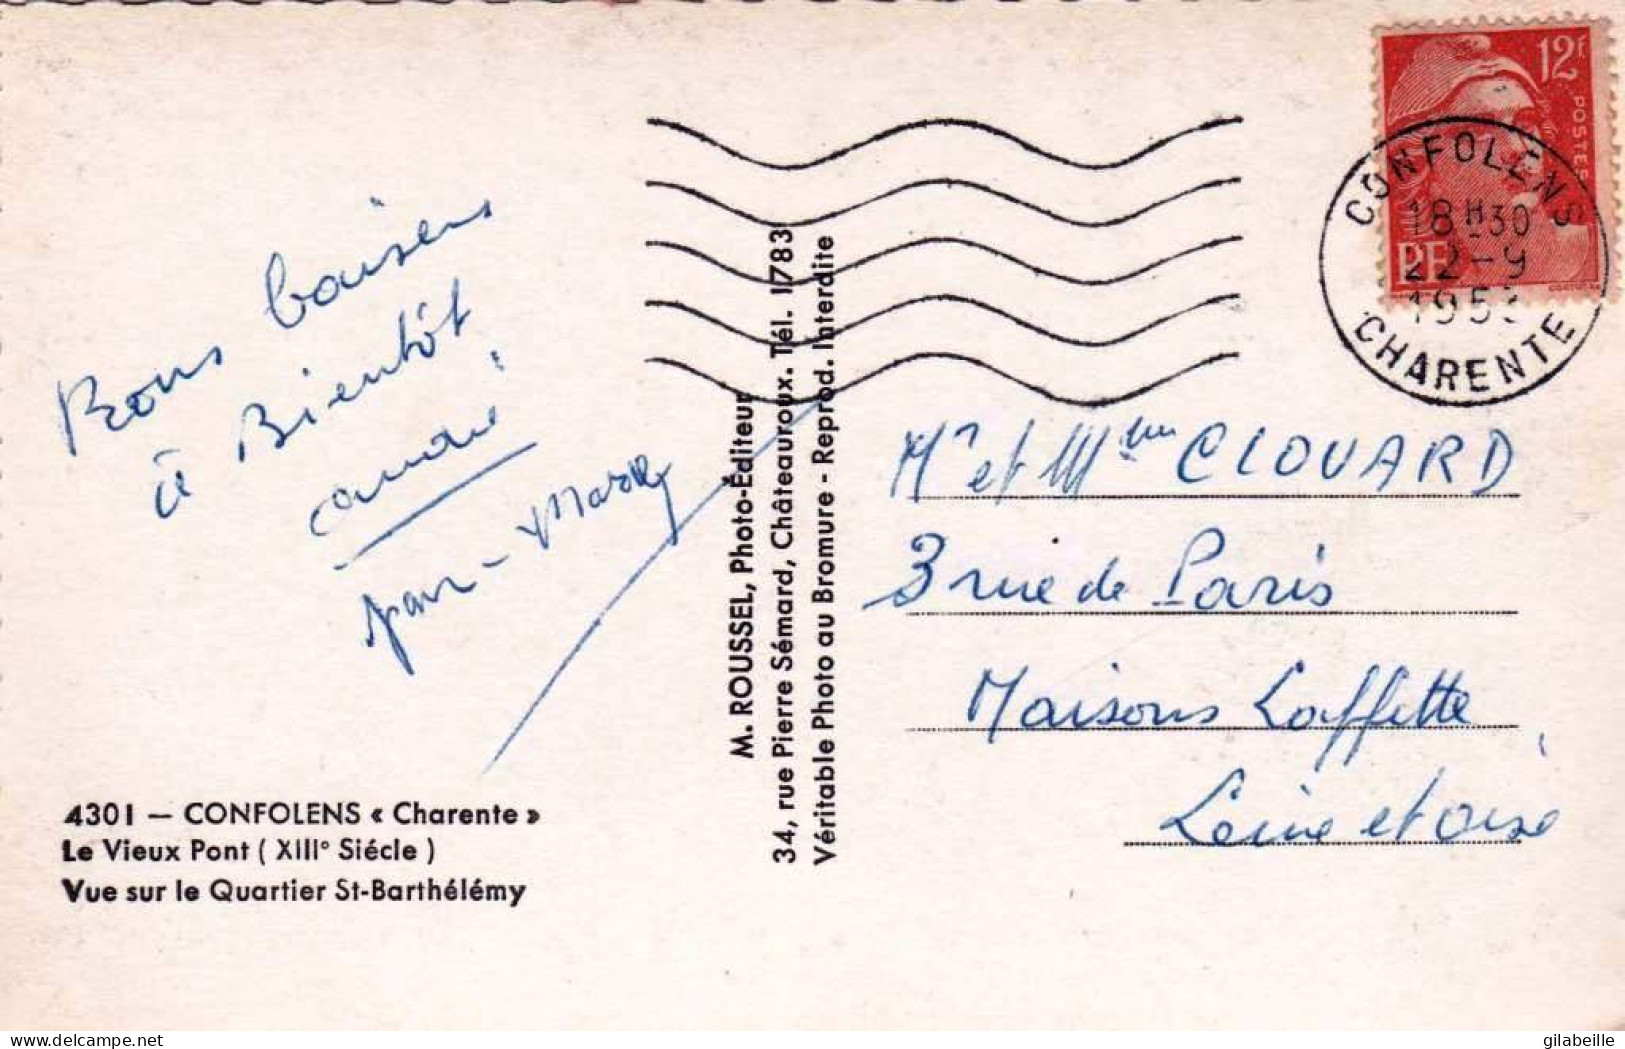 Bons baisers
à Bientôt
Jean-Marc
4301 — CONFOLENS « Charente »
Le Vieux Pont ( XIII° Siécle )
Vue sur le Quartier St-Barthélémy
M. ROUSSEL, Photo-Éditeur
34, rue Pierre Sémard, Châteauroux. Tél. 1783
Véritable Photo au Bromure - Reprod. Interdite
12F
POSTES
RF
CONFOLENS
18H30
22-9
CHARENTE
Mr et Mme CLOUARD
3 rue de Paris
Maisons Laffitte
Seine et Oise
delcampe.net
gilabeille